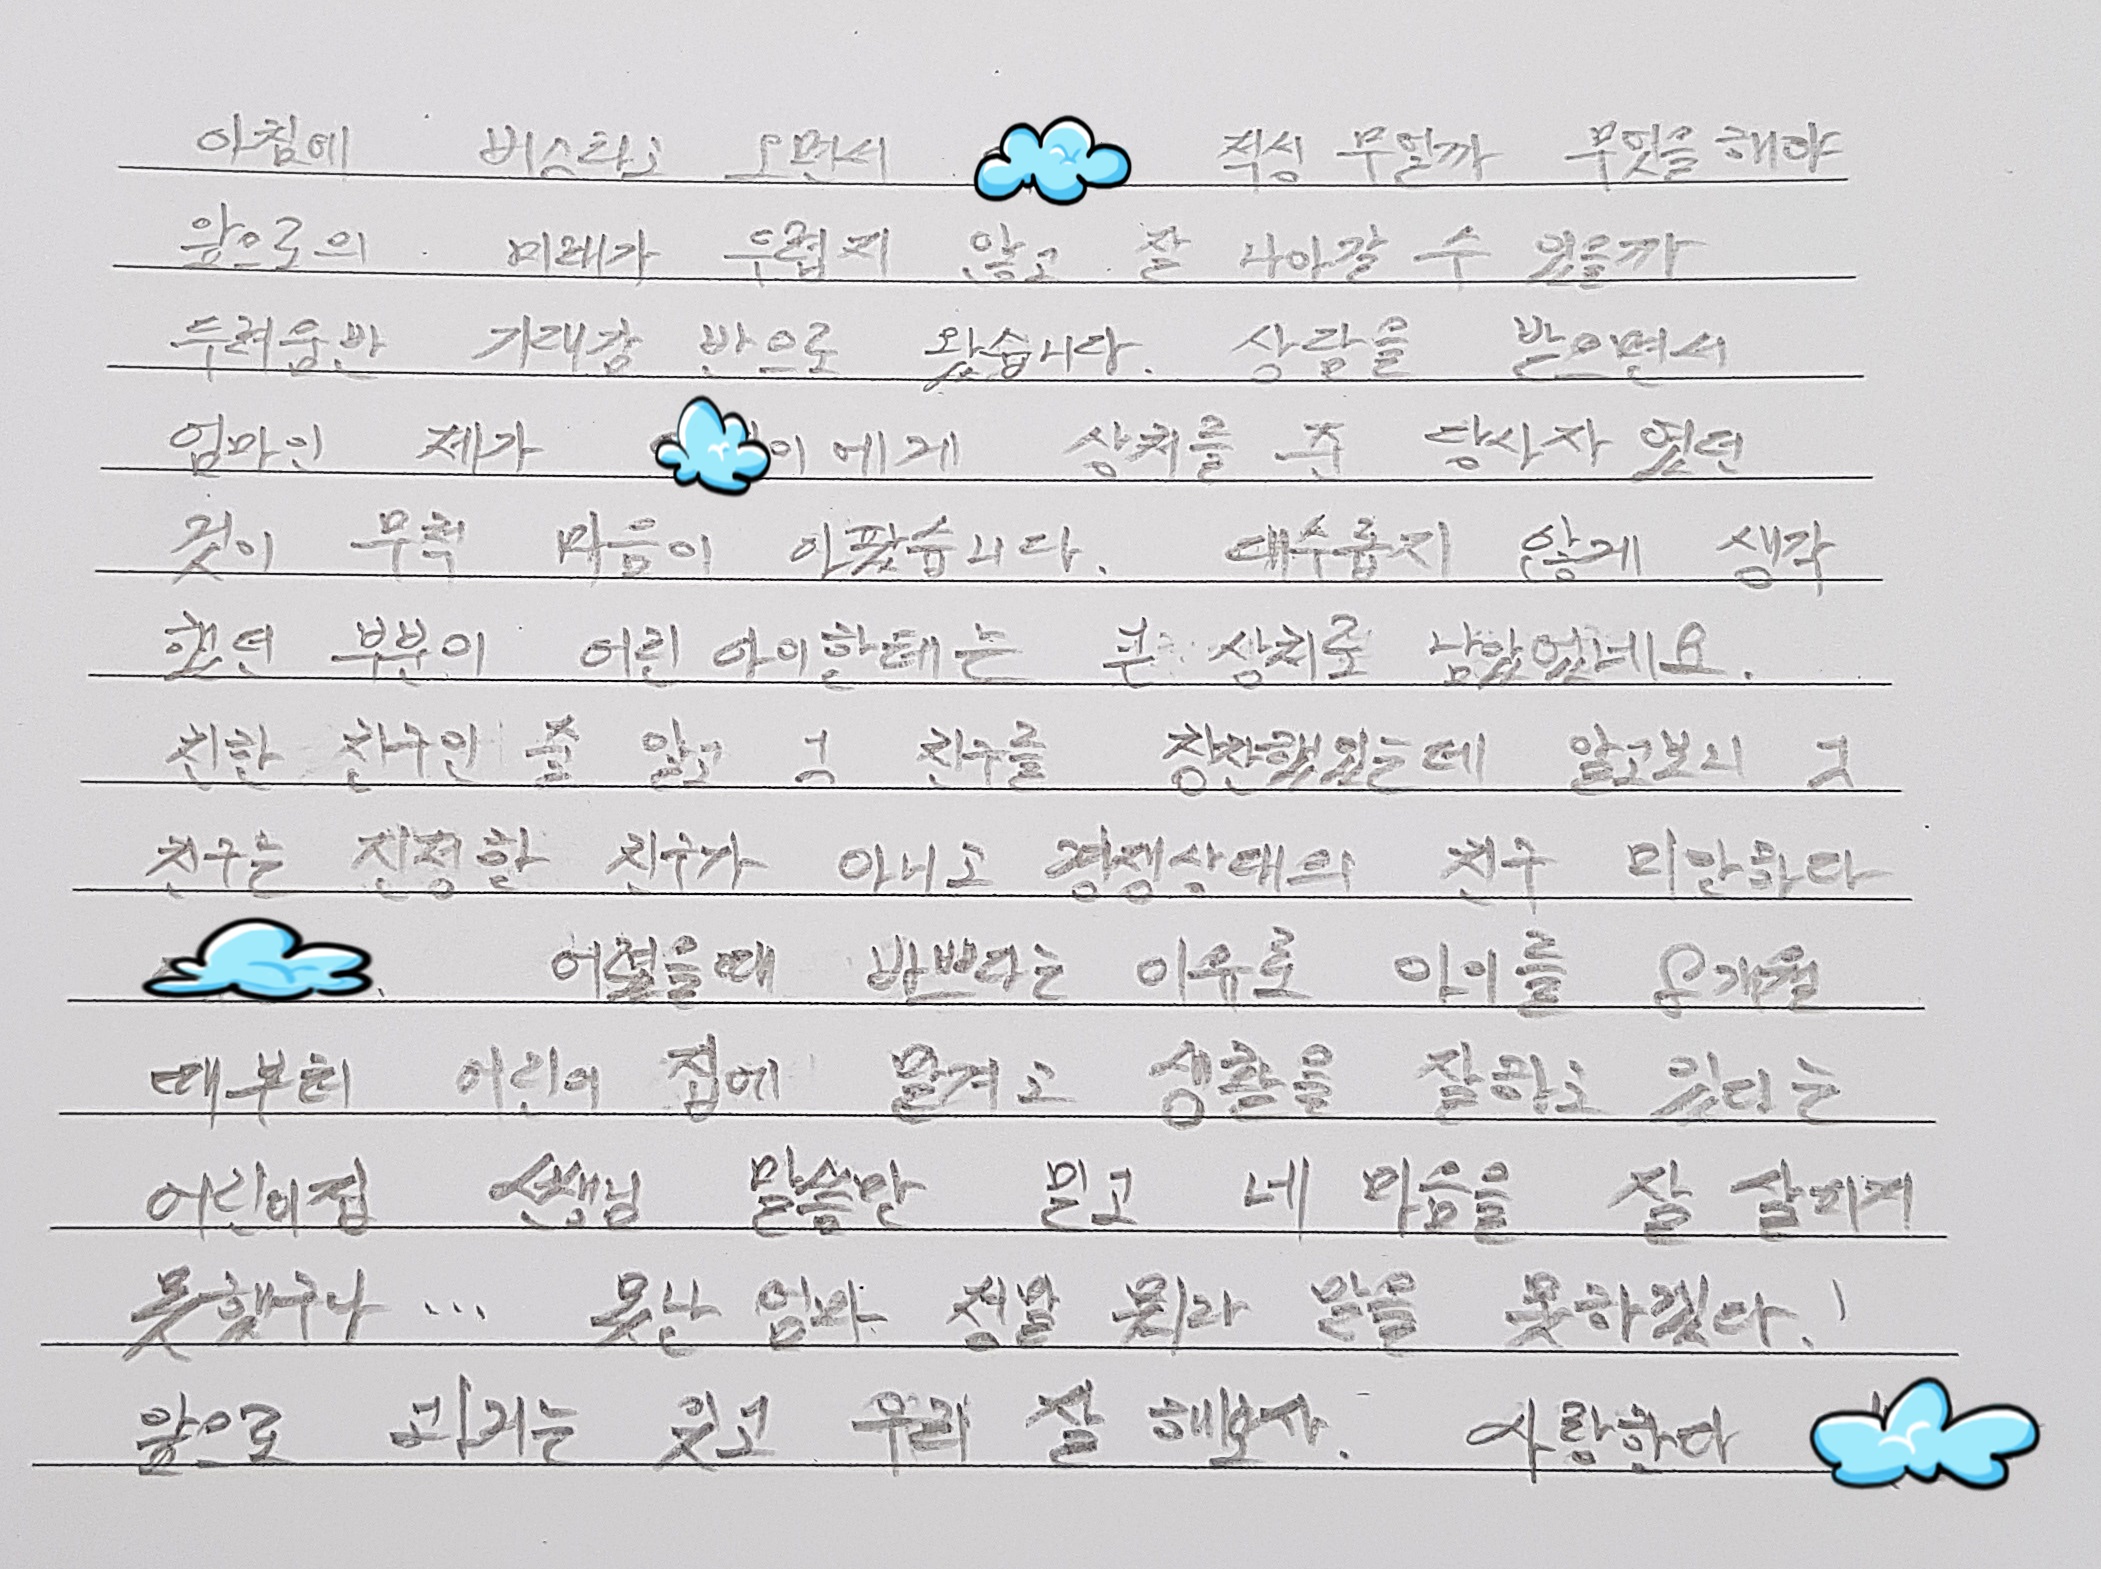 아침에 버스타고 오면서 적성 무얼까 무엇을 해야
앞으로의 미래가 두렵지 않고 잘 나아갈 수 있을까
두려움반 기대감 반으로 왔습니다. 상담을 받으면서
엄마인 제가 이에게 상처를 준 당사자 였던
것이 무척 마음이 아팠습니다. 대수롭지 않게 생각
했던 부분이 어린 아이한테는 큰 상처로 남았었네요.
친한 친구인 줄 알고 그 친구를 칭찬했었는데 알고보니 그
친구는 진정한 친구가 아니고 경쟁상대의 친구 미안하다
어렸을때 바쁘다는 이유로 아이를 8개월
때부터 어린이 집에 맡겨고 생활을 잘하고 있다는
어린이집 선생님 말씀만 믿고 네 마음을 잘 살피지
못했구나 ... 못난 엄마 정말 뭐라 말을 못하겠다.!
앞으로 괴리는 잊고 우리 잘 해보자. 사랑한다